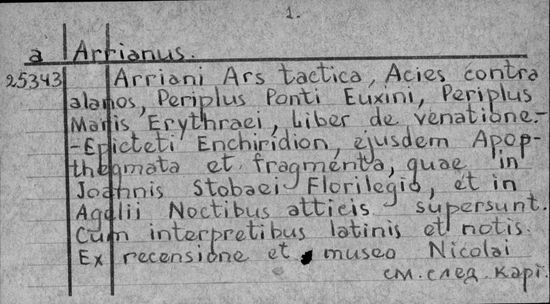 1.
a Arrianus.
25343 Arriani Ars tactica, Acies contra
alanos, Periplus Ponti Euxini, Periplus
Maris Erythraei, Liber de venatione.-
-Epicteti Enchiridion, ejusdem Apop-
thegmata et fragmenta, quae in
Joannis Stobaei Florilegio, et in
Agellii Noctibus atticis supersunt.
Cum interpretibus latinis et notis.
Ex recensione et museo Nicolai
см. след. карт.